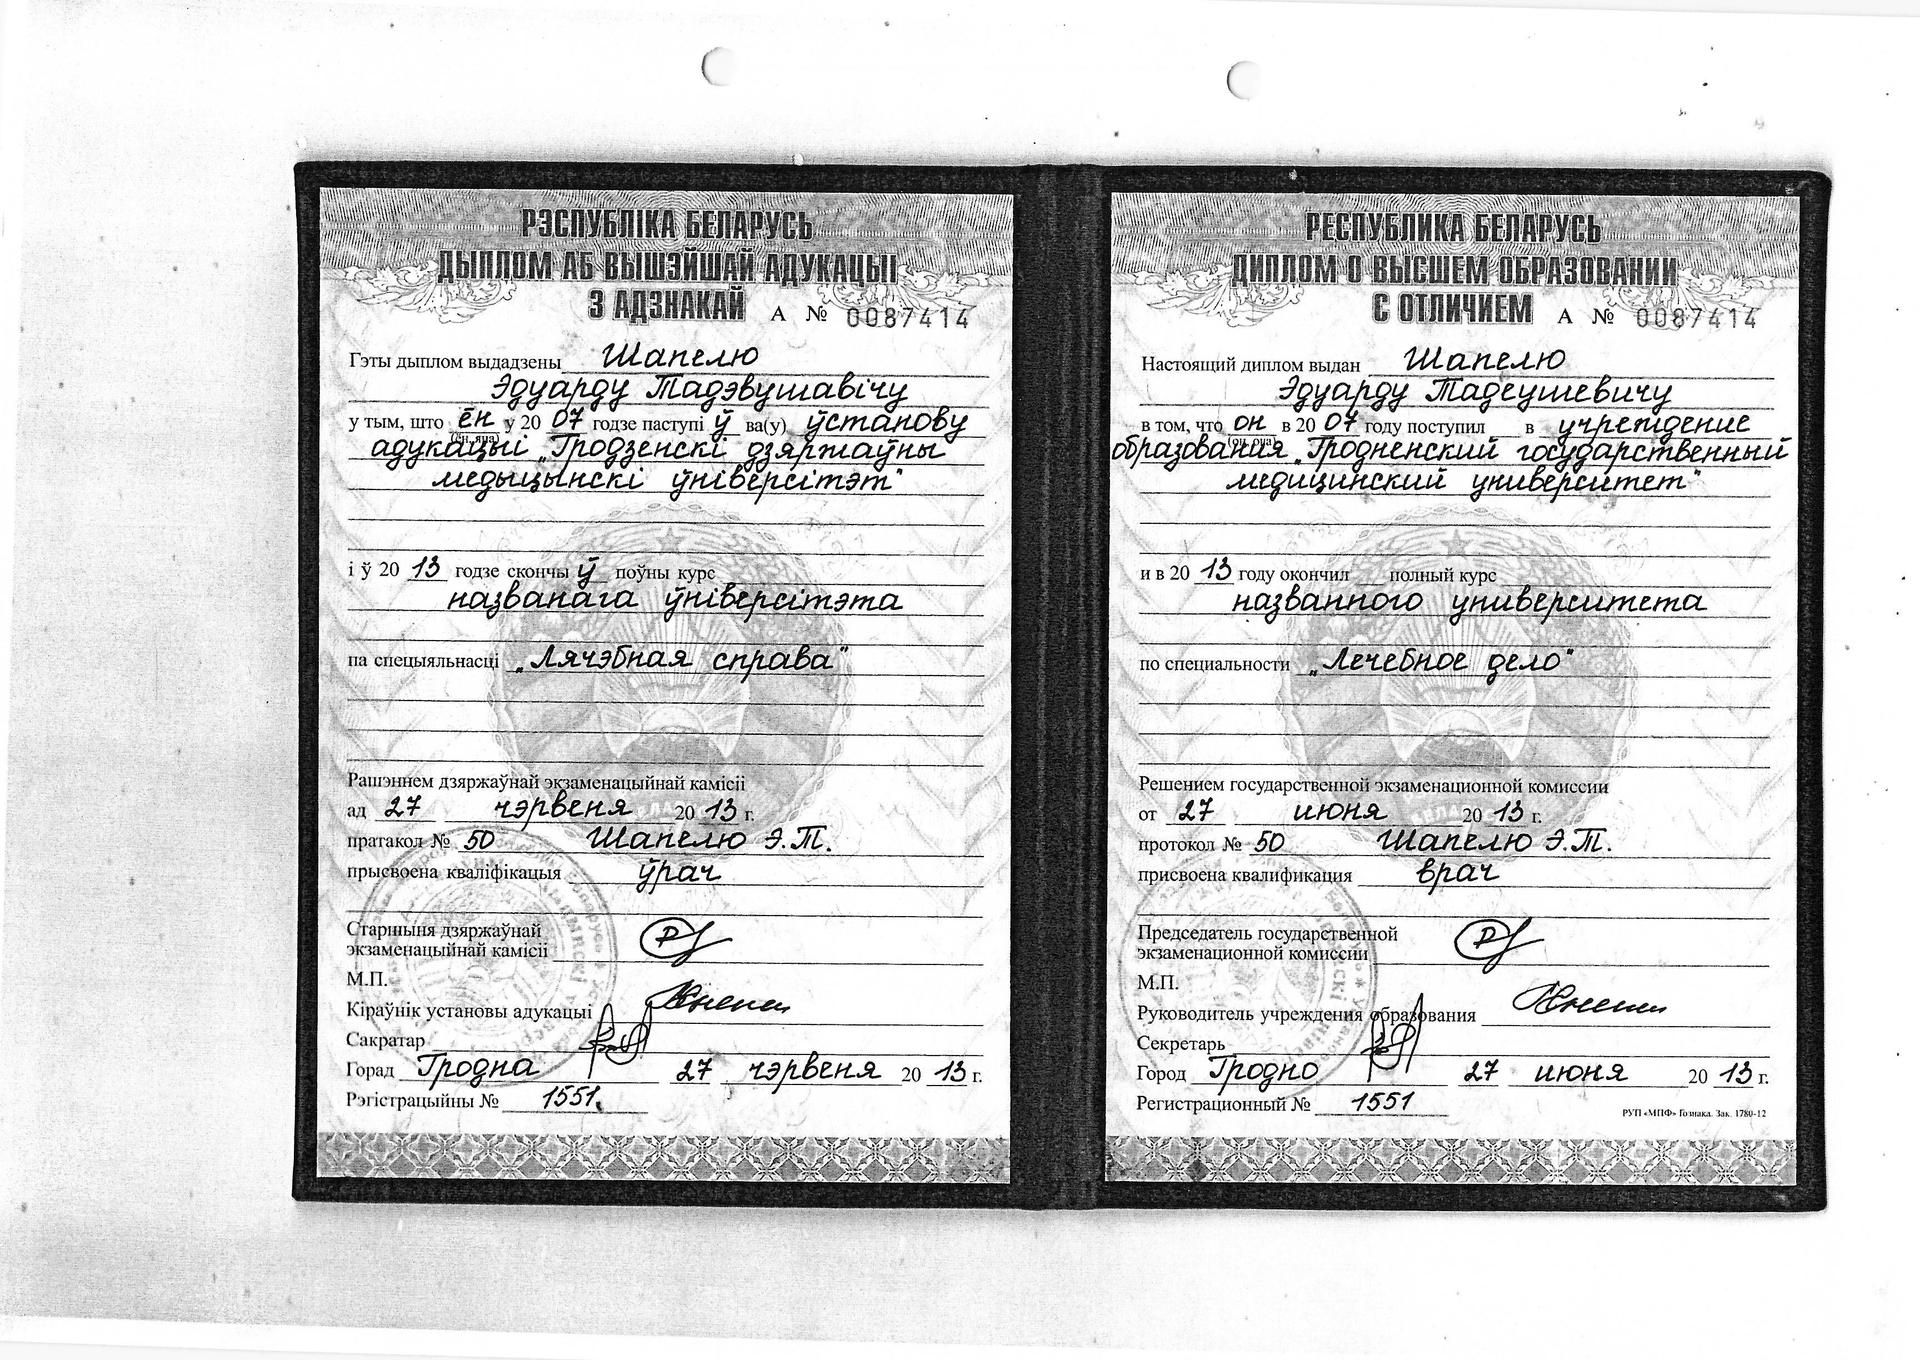 РЭСПУБЛІКА БЕЛАРУСЬ
ДЫПЛОМ АБ ВЫШЭЙШАЙ АДУКАЦЫІ
З АДЗНАКАЙ А № 0087414
Гэты дыплом выдадзены Шапелю
Эдуарду Тадэвушавічу
у тым, што ён у 20 07 годзе паступі ў ва(у) ўстанову
(ён, яна)
адукацыі „Гродзенскі дзяржаўны
медыцынскі ўніверсітэт"
і ў 20 13 годзе скончы ў поўны курс
названага ўніверсітэта
па спецыяльнасці „Лячэбная справа"
Рашэннем дзяржаўнай экзаменацыйнай камісіі
ад 27 чэрвеня 20 13 г.
пратакол № 50 Шапелю Э.Т.
прысвоена кваліфікацыя ўрач
Старшыня дзяржаўнай
экзаменацыйнай камісіі
М.П.
Кіраўнік установы адукацыі
Сакратар
Горад Гродна 27 чэрвеня 20 13 г.
Рэгістрацыйны № 1551.
РЕСПУБЛИКА БЕЛАРУСЬ
ДИПЛОМ О ВЫСШЕМ ОБРАЗОВАНИИ
С ОТЛИЧИЕМ А № 0087414
Настоящий диплом выдан Шапелю
Эдуарду Тадеушевичу
в том, что он в 20 07 году поступил в учреждение
(он, она)
образования „Гродненский государственный
медицинский университет"
и в 20 13 году окончил полный курс
названного университета
по специальности „Лечебное дело"
Решением государственной экзаменационной комиссии
от 27 июня 20 13 г.
протокол № 50 Шапелю Э.Т.
присвоена квалификация врач
Председатель государственной
экзаменационной комиссии
М.П.
Руководитель учреждения образования
Секретарь
Город Гродно 27 июня 20 13 г.
Регистрационный № 1551
РУП «МПФ» Гознака. Зак. 1780-12